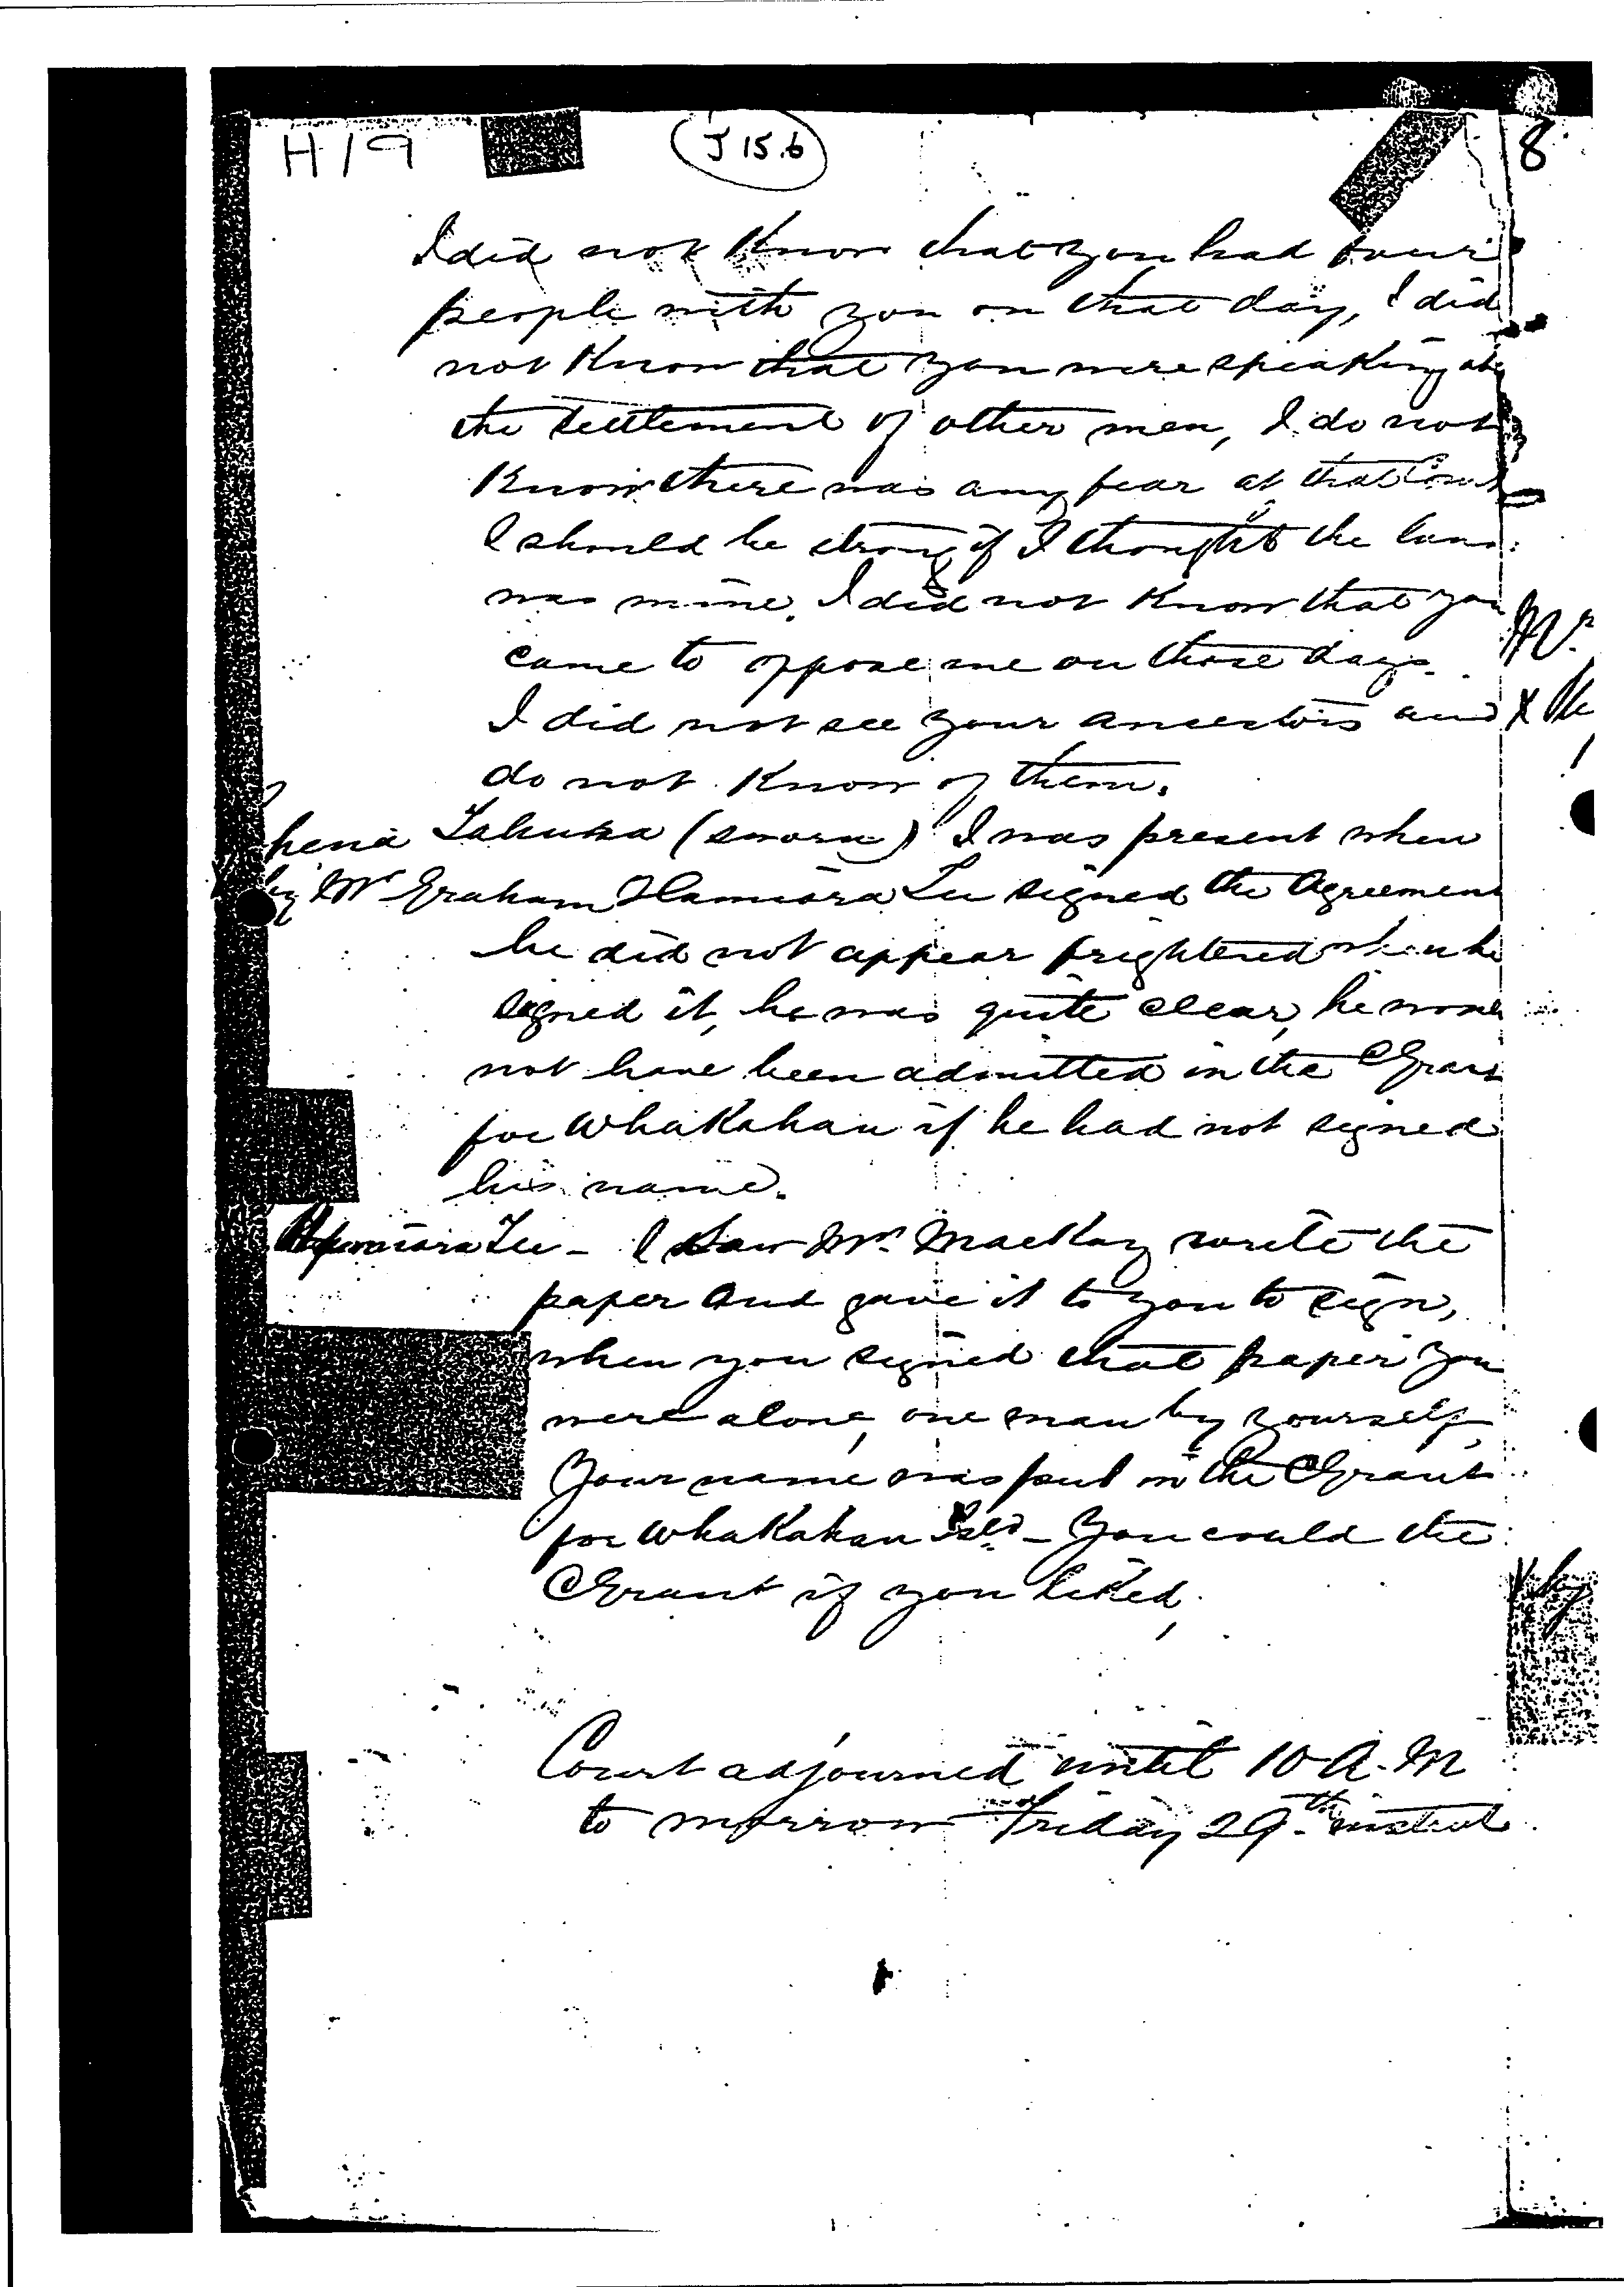 H19
J 15.6
8
I did not know that you had four
people with you on that day, I did
not know that you were speaking ab
the settlement of other men, I do not
know there was any fear at that Court
I should be strong if I thought the land
was mine. I did not know that you
came to oppose me on those days.
I did not see your ancestors and
do not know of them.
hena (sworn) I was present when
Mr Graham Hamiora Tu signed the Agreement
he did not appear frightened when he
signed it, he was quite clear, he would
not have been admitted in the CGrant
for Whakahau if he had not signed
his name.
Hamiora Tu - I saw Mr. Mackay write the
paper and gave it to you to sign,
when you signed that paper you
were alone, one man by yourself,
Your name was put in the CGrant
for Whakahau Isld - You could the
CGrant if you liked,
Court adjourned until 10 A.M
to morrow Friday 29th instant